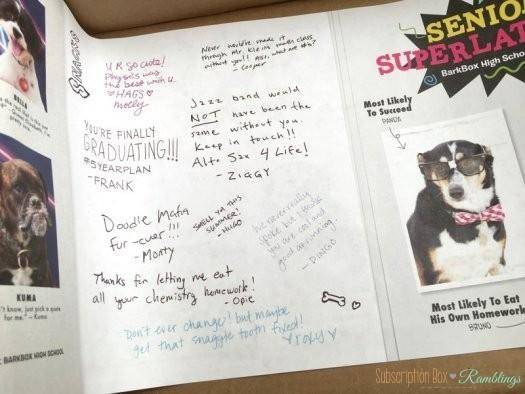 BELLA
KUMA
"I don't know, just pick a quote
for me." - Kuma
BARKBOX HIGH SCHOOL
U R so cute!
Physics was
the best with U
♡HAGS♡
Molly
Never would've made it
through Mr. Klein's math class
without you!!
- Cooper
YOU'RE FINALLY
GRADUATING!!!
#5YEARPLAN
-FRANK
Jazz band would
NOT have been the
same without you.
Keep in touch!!
Alto Sax 4 Life!
- ZIGGY
Doodle Mafia
fur-ever!!!
- Monty
SMELL YA THIS
SUMMER!
- HUGO
We never really
spoke but I think
you are cool and
good at running.
- DINGO
Thanks for letting me eat
all your chemistry homework!
- Opie
Don't ever change! but maybe
get that snaggle tooth fixed!
Roxy
SENIO
SUPERLAT
BarkBox High Schoo
Most Likely
To Succeed
PANDA
Most Likely To Eat
His Own Homework
BRUNO
Subscription Box ♥ Ramblings